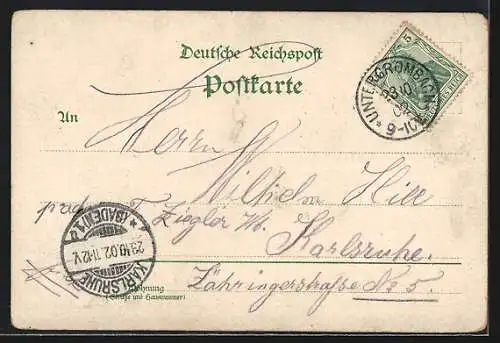 Deutsche Reichspost
Postkarte
5
UNTERGROMBACH
9-10
An
Herrn
Wilhelm Hill
p. adr. Ziegler W.
Karlsruhe.
KARLSRUHE (BADEN) 1.
23.10.02. 11-12 V.
Zähringerstraße No 5.
Wohnung
(Straße und Hausnummer)